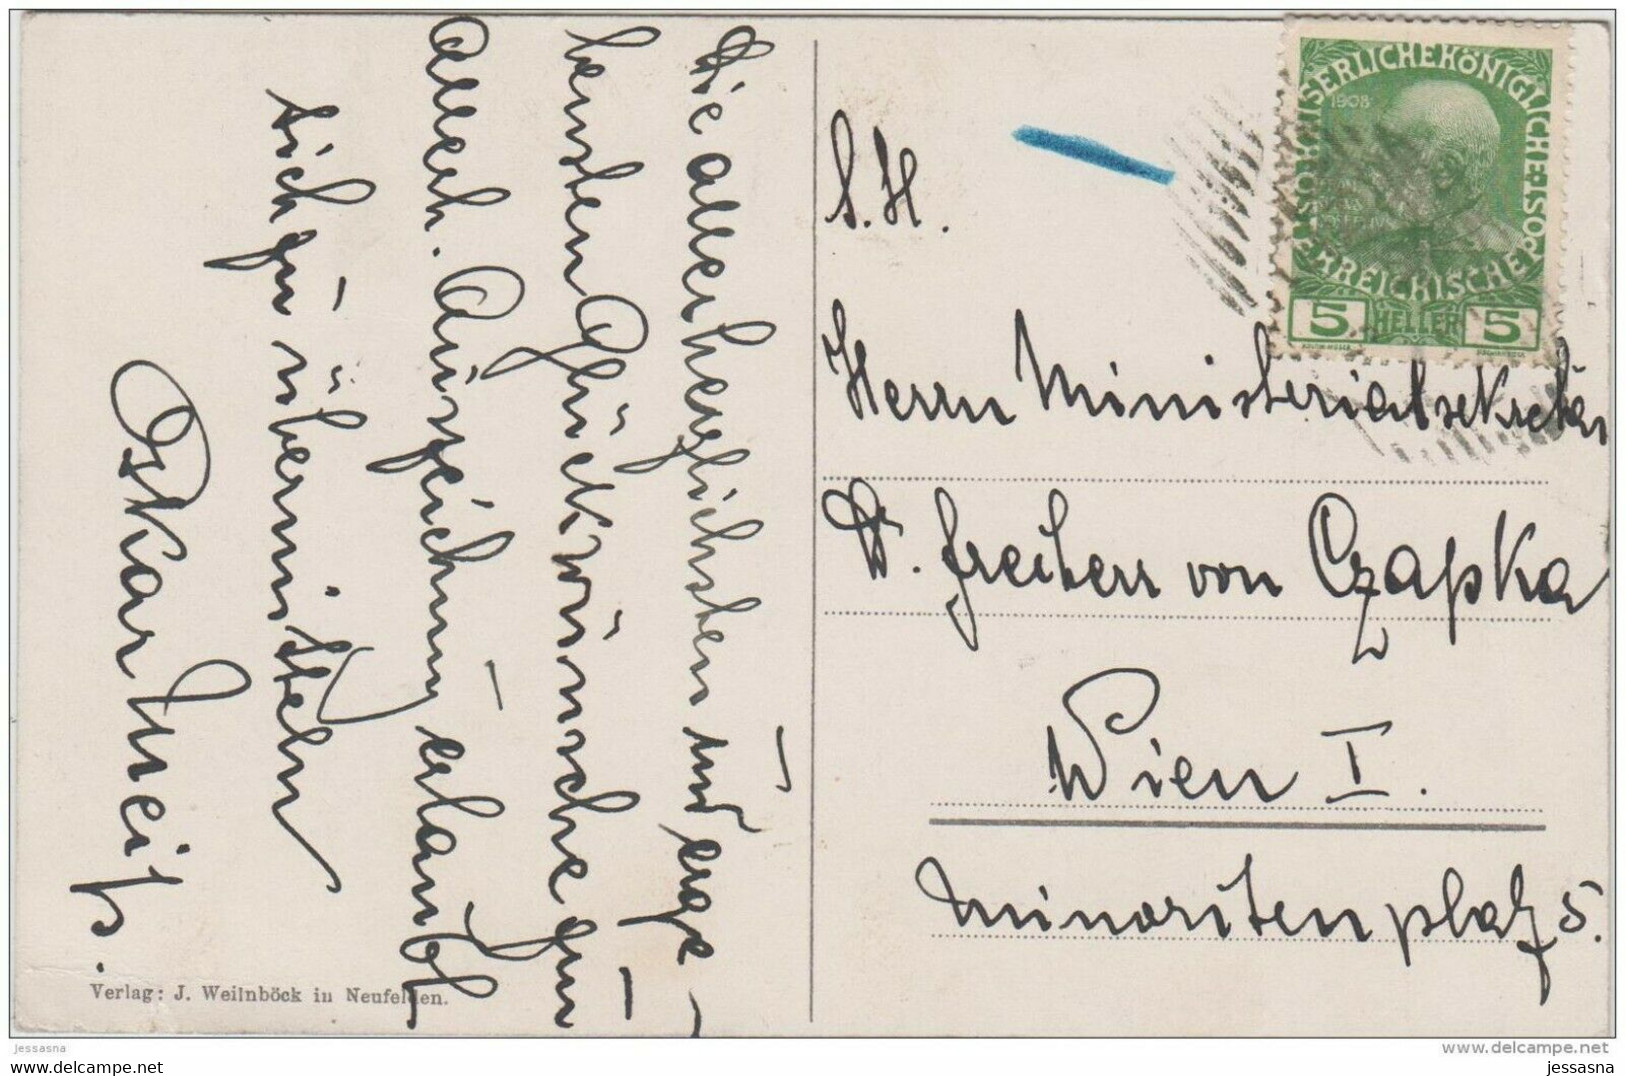 Die allerherzlichsten und erge-
bensten Glückwünsche zur
allerh. Auszeichnung erlaubt
sich zu übermitteln
Oskar Weiß.
Verlag: J. Weilnböck in Neufelden.
KAISERLICHE KÖNIGLICHE ÖSTERREICHISCHE POST
1908
5 HELLER 5
S. H.
Herrn Ministerialsekretär
Dr. Freiherr von Czapka
Wien I.
Minoritenplatz 5.
jessasna
www.delcampe.net
jessasna